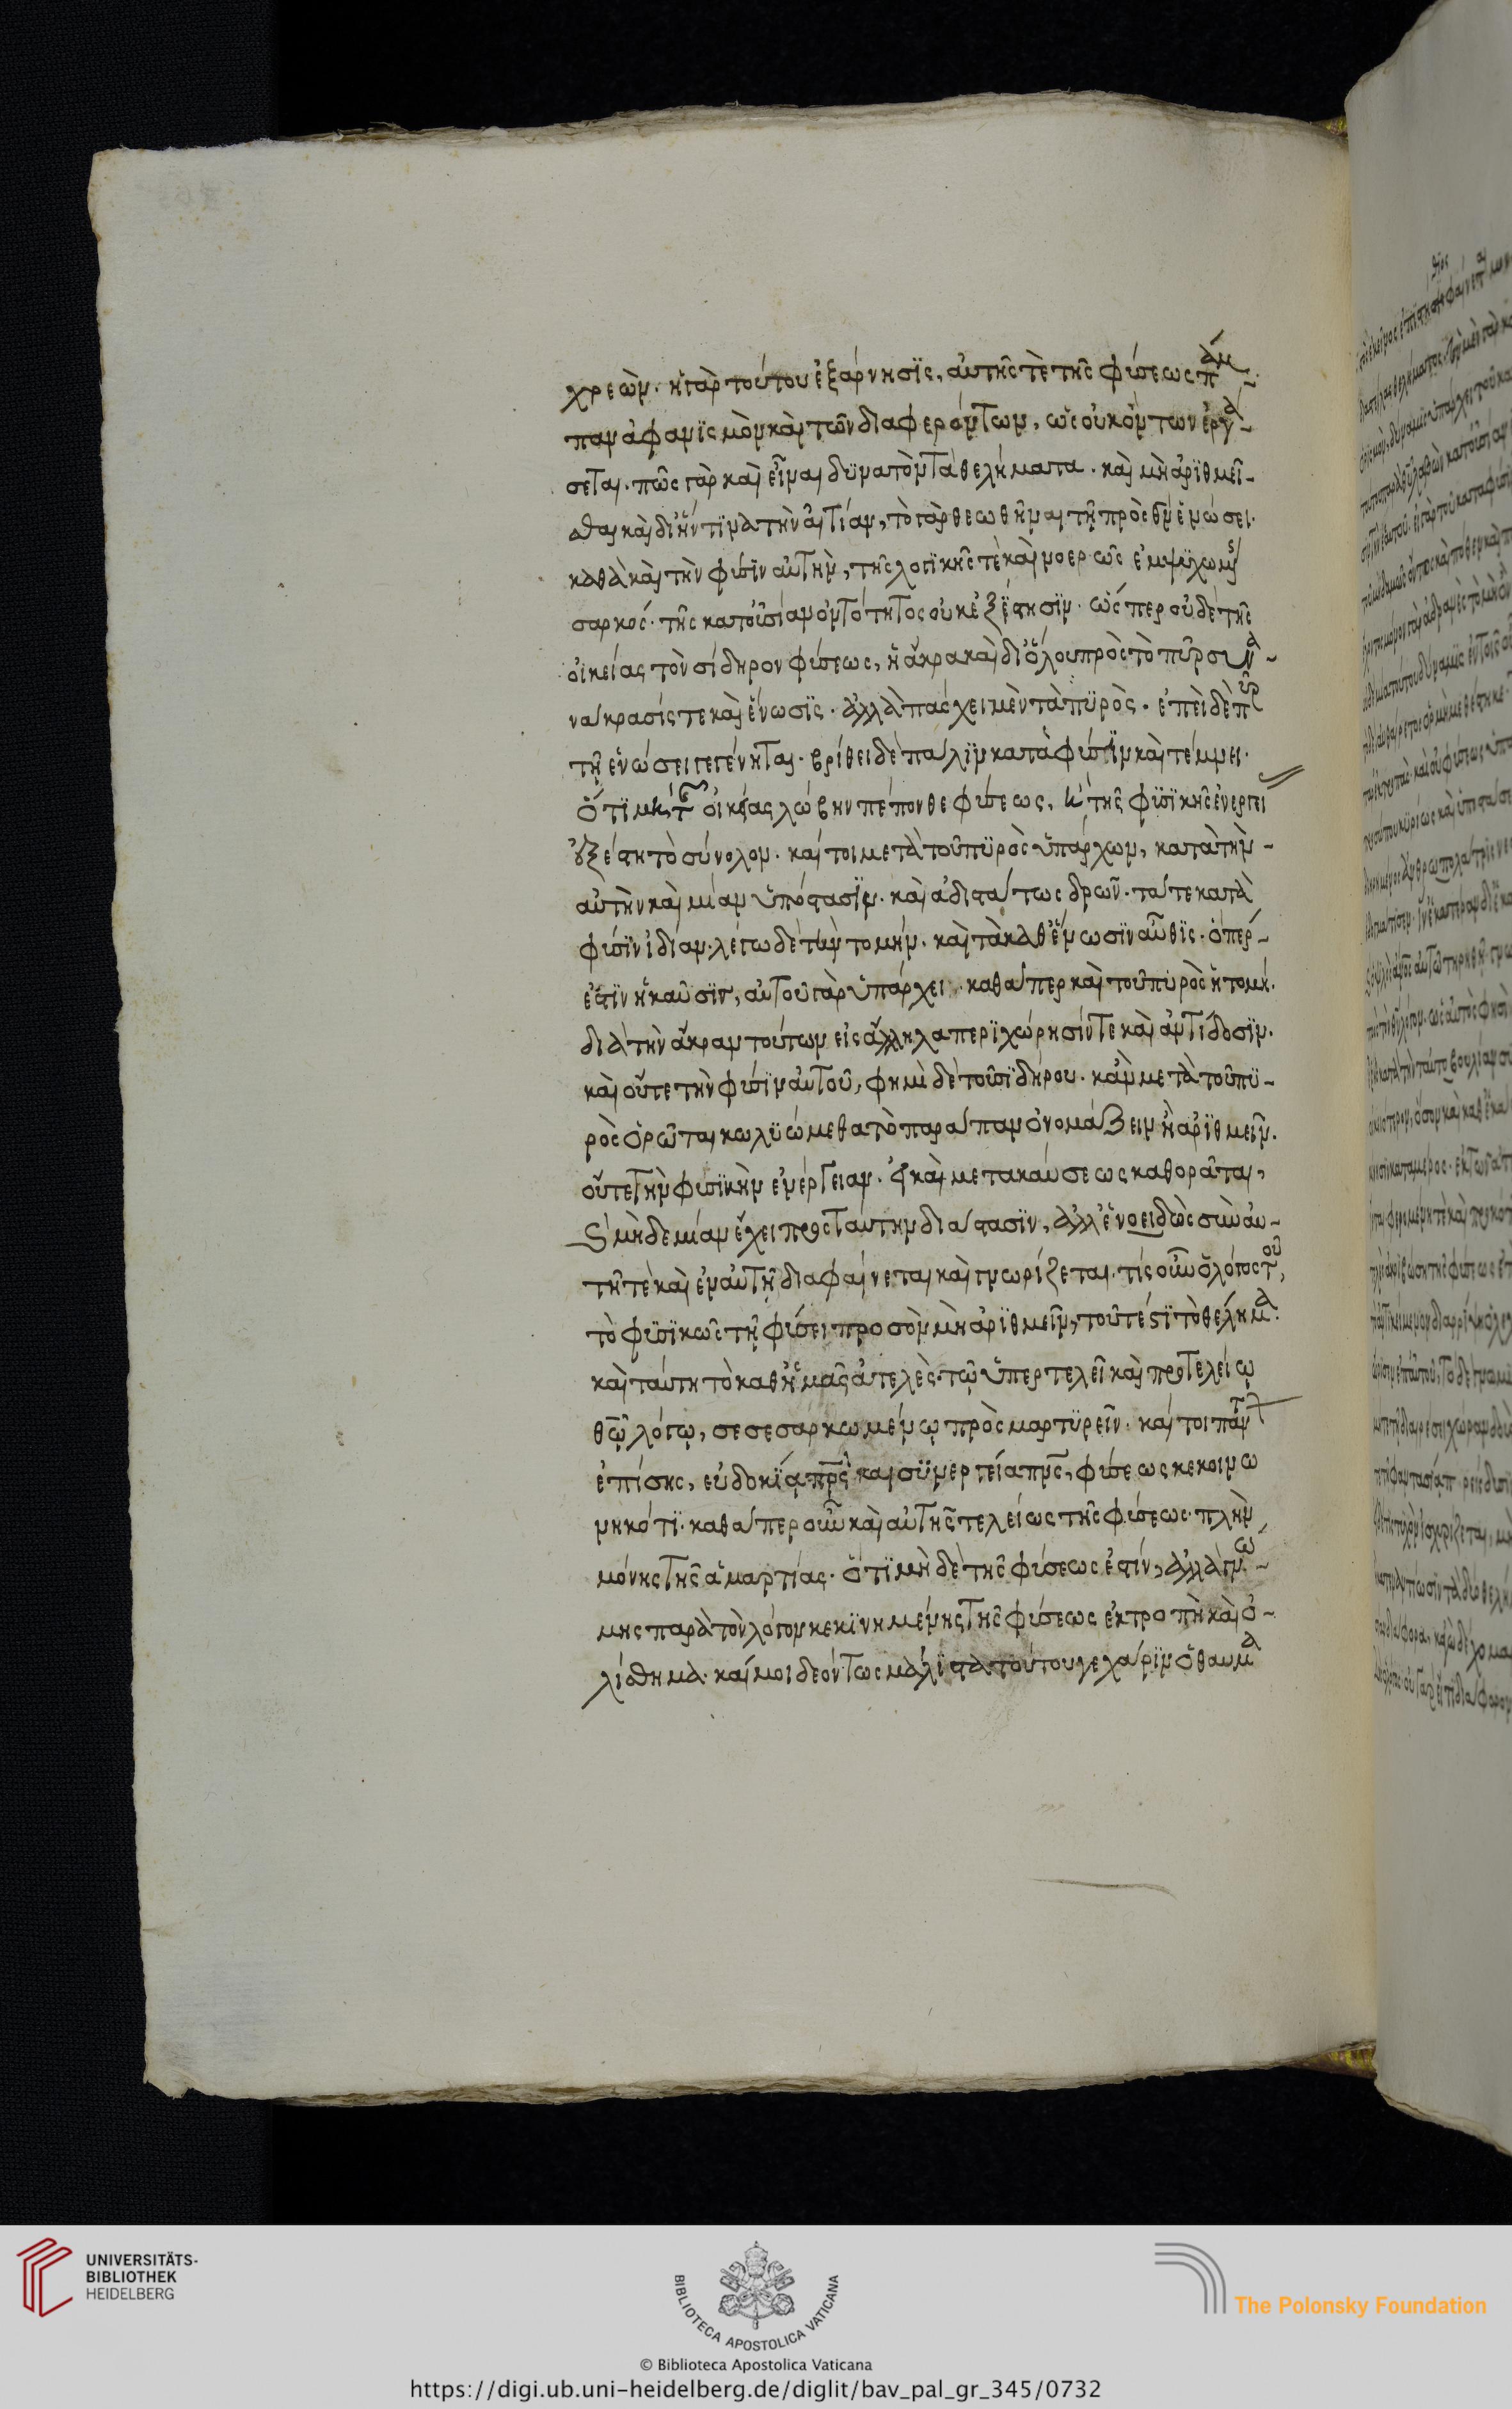 χρεών. ἡ γὰρ τούτου ἐξάρνησϊς, αὐτῆς τὲ τῆς φύσεως πάμ-
παν ἀφανϊσμὸν καὶ τῶν διαφερόντων, ὡς οὐκ ὄντων ἐργά-
σεται. πῶς γὰρ καὶ εἶναι δϋνατὸν τὰ θελήματα. καὶ μὴ ἀρϊθμεῖ-
σθαι καὶ δι' ἥν τϊνα τὴν αἰτίαν, τὸ γὰρ θεωθῆναι τῇ πρὸς θν ἑνώσει.
καθὰ καὶ τὴν φύσϊν αὐτὴν, τῆς λογϊκῆς τὲ καὶ νοερῶς ἐμψϋχωμένης
σαρκός. τῆς κατ' οὐσίαν ὀντότητος οὐκ ἐξέστησϊν. ὥσπερ οὐδὲ τῆς
οἰκείας τὸν σίδηρον φύσεως, ἡ ἄκρα καὶ δι' ὅλου πρὸς τὸ πῦρ συνα-
νάκρασίς τε καὶ ἕνωσϊς. ἀλλὰ πάσχει μὲν τὰ πϋρὸς. ἐπεὶ δὲ πῦρ
τῇ ἑνώσει γεγένηται. βρίθει δὲ πάλϊν κατὰ φύσϊν καὶ τέμνει.
ὅτϊ μὴ τῆς οἰκείας λώβην πέπονθε φύσεως, ἢ τῆς φϋσϊκῆς ἐνεργεί
ἐξέστη τὸ σύνολον. καίτοι μετὰ τοῦ πϋρὸς ὑπάρχων, κατὰ τὴν-
αὐτὴν καὶ μίαν ὑπόστασϊν. καὶ ἀδιστάτως δρῶν. τά τε κατὰ
φύσϊν ἰδίαν. λέγω δὲ τὴν τομήν. καὶ τὰ καθ' ἕνωσϊν αὖθϊς. ὁπερ-
ἐστϊν ἡ καῦσϊν, αὐτοῦ γὰρ ὑπάρχει. καθάπερ καὶ τοῦ πυρὸς ἡ τομή.
διὰ τὴν ἄκραν τούτων εἰς ἄλληλα περϊχώρησίν τε καὶ ἀντίδοσϊν.
καὶ οὔτε τὴν φύσϊν αὐτοῦ, φημὶ δὲ τοῦ σϊδήρου. κἂν μετὰ τοῦ πϋ-
ρὸς ὁρῶται κωλϋώμεθα τὸ παράπαν ὀνομάζειν ἢ ἀρϊθμεῖν.
οὔτε τὴν φυσϊκὴν ἐνέργειαν. εἰ καὶ μετα καύσεως καθορᾶται,
καὶ μὴδεμίαν ἔχει πρὸς ταύτην διάστασϊν, ἀλλ' ἑνοειδῶς σὺν αὐ-
τῇ τὲ καὶ ἐν αὐτῇ διαφαίνεται καὶ γνωρίζεται. τίς οὖν ὁ λόγος τοῦ,
τὸ φϋσϊκῶς τῇ φύσει προσὸν μὴ ἀρϊθμεῖν, τοῦτέστϊ τὸ θέλημα.
καὶ ταύτη τὸ καθ' ἡμᾶς ἀτελὲς τῷ ὑπερτελεῖ καὶ προτελείῳ
θῶ λόγῳ, σεσεσαρκωμένῳ πρὸς μαρτϋρεῖν. καίτοι πάντ
ἐπίσης, εὐδοκϊᾳ πρς καὶ σϋνεργείᾳ πνς, φύσεως κεκοινω
νηκότϊ. καθάπερ οὖν καὶ αὐτῆς τελείως τῆς φύσεως. πλὴν
μόνης τῆς ἁμαρτίας. ὅτϊ μὴ δὲ τῆς φύσεως ἐστίν, ἀλλὰ γνώ-
μης παρὰ τὸν λόγον κεκϊνημένης τῆς φύσεως ἐκτροπὴ καὶ ὀ-
λίσθημα. καί μοι δεόντως μάλϊστα τούτου γε χάρϊν ὁ θαυμα
UNIVERSITÄTS-
BIBLIOTHEK
HEIDELBERG
BIBLIOTECA APOSTOLICA VATICANA
The Polonsky Foundation
© Biblioteca Apostolica Vaticana
https://digi.ub.uni-heidelberg.de/diglit/bav_pal_gr_345/0732